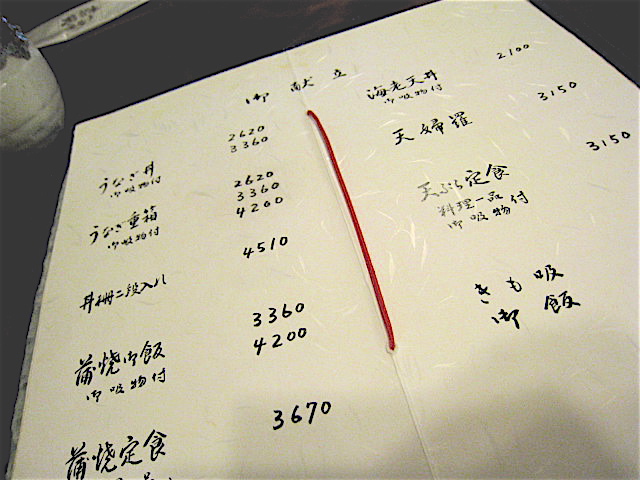 御献立
うなぎ丼
御吸物付
2620
3360
うなぎ重箱
御吸物付
2620
3360
4200
丼冊二段入り
4510
蒲焼御飯
御吸物付
3360
4200
蒲焼定食
3670
海老天丼
御吸物付
2100
天婦羅
3150
天ぷら定食
料理一品
御吸物付
3150
きも吸
御飯